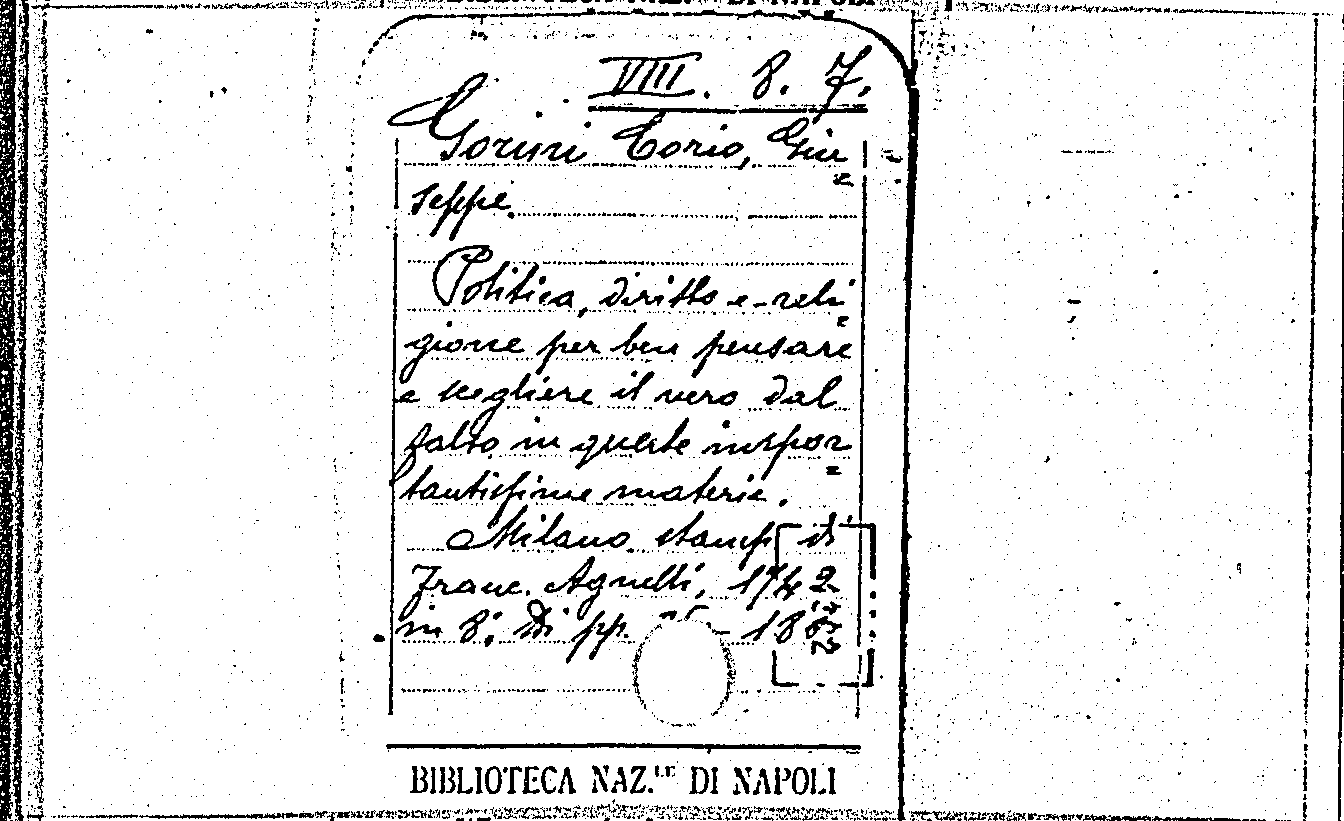 VIII. 8. 7.
Gorini Corio, Giu=
seppe.
Politica, diritto e reli=
gione per ben pensare
e scegliere il vero dal
falso in queste impor=
tantissime materie.
Milano stamp. di
Franc. Agnelli, 1742
in 8.° Di pp.
BIBLIOTECA NAZ.LE DI NAPOLI